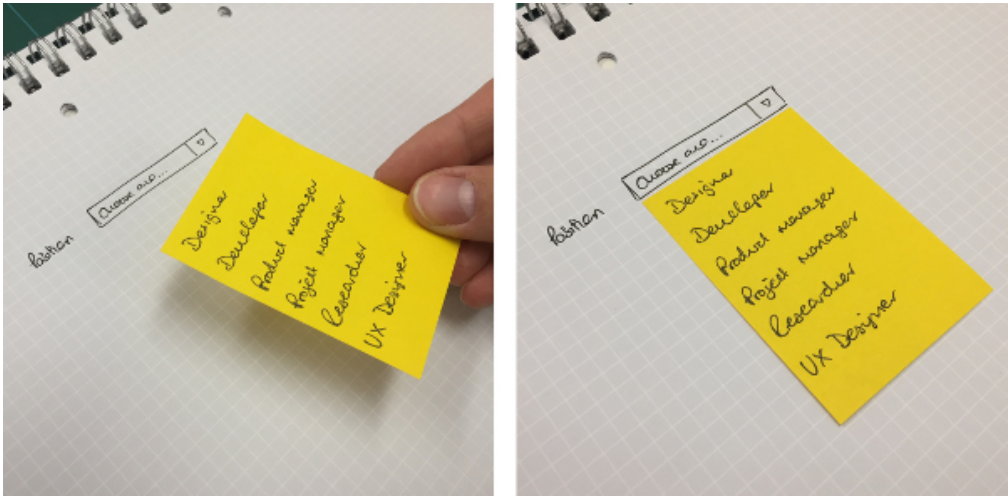 Position
Choose one...
Designer
Developer
Product manager
Project manager
Researcher
UX Designer
Position
Choose one...
Designer
Developer
Product manager
Project manager
Researcher
UX Designer